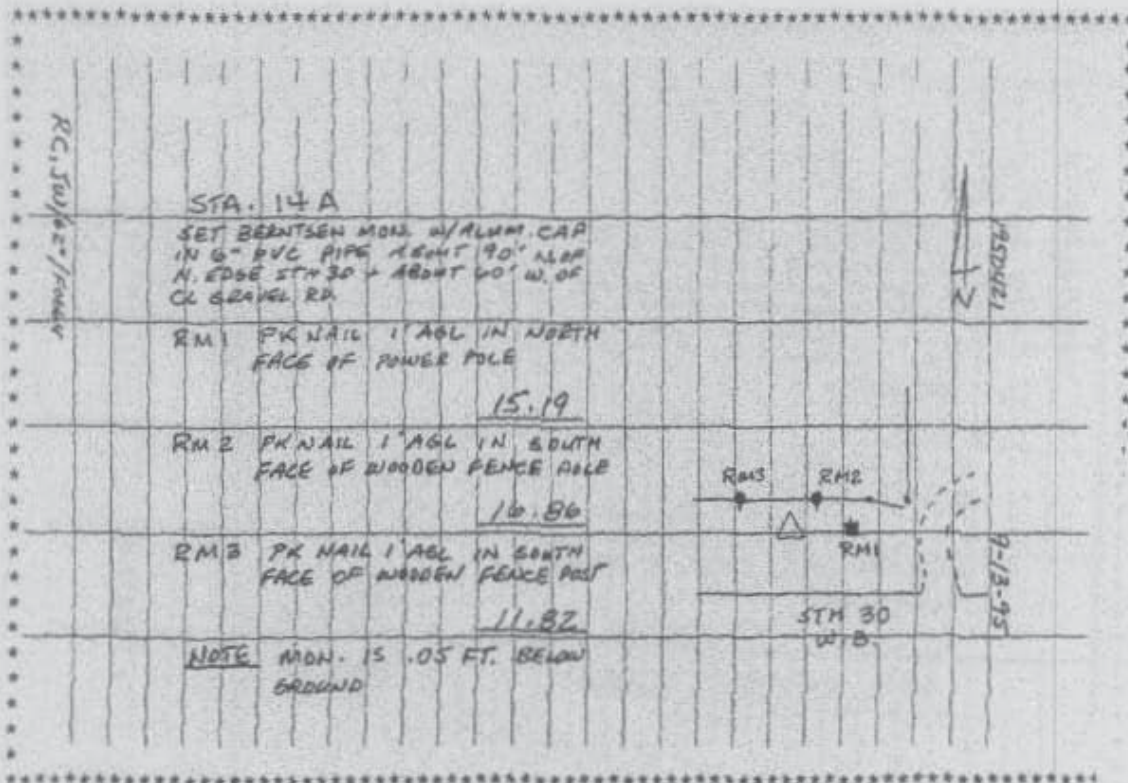 STA. 14 A
SET BERNTSEN MON. W/ALUM. CAP
IN 6" PVC PIPE ABOUT 90' N. OF
N. EDGE STH 30 + ABOUT 60' W. OF
CL GRAVEL RD.
RM 1 PK NAIL 1' AGL IN NORTH
FACE OF POWER POLE
15.19
RM 2 PK NAIL 1' AGL IN SOUTH
FACE OF WOODEN FENCE POLE
16.86
RM 3 PK NAIL 1' AGL IN SOUTH
FACE OF WOODEN FENCE POST
11.82
NOTE MON. IS .05 FT. BELOW
GROUND
RM3 RM2
RM1
STH 30
W.B.
N
9-13-95